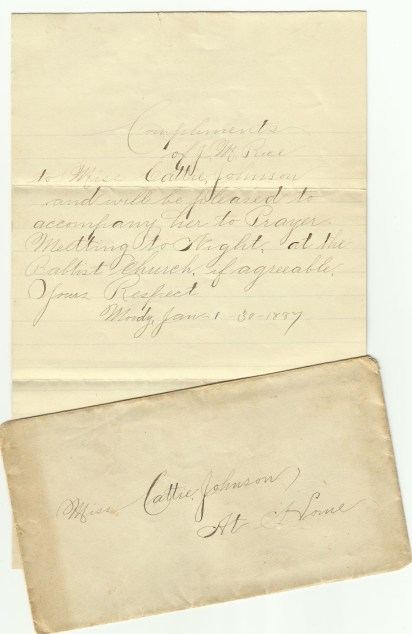 Compliments
of J M Rice
to Miss Cattie Johnson
and will be pleased to
accompany her to Prayer
Meetting to Night, at the
Babtist Church, if agreeable,
Yours Respect
Mondy, Jan - 1 30 - 1887
Miss Cattie Johnson
At Home